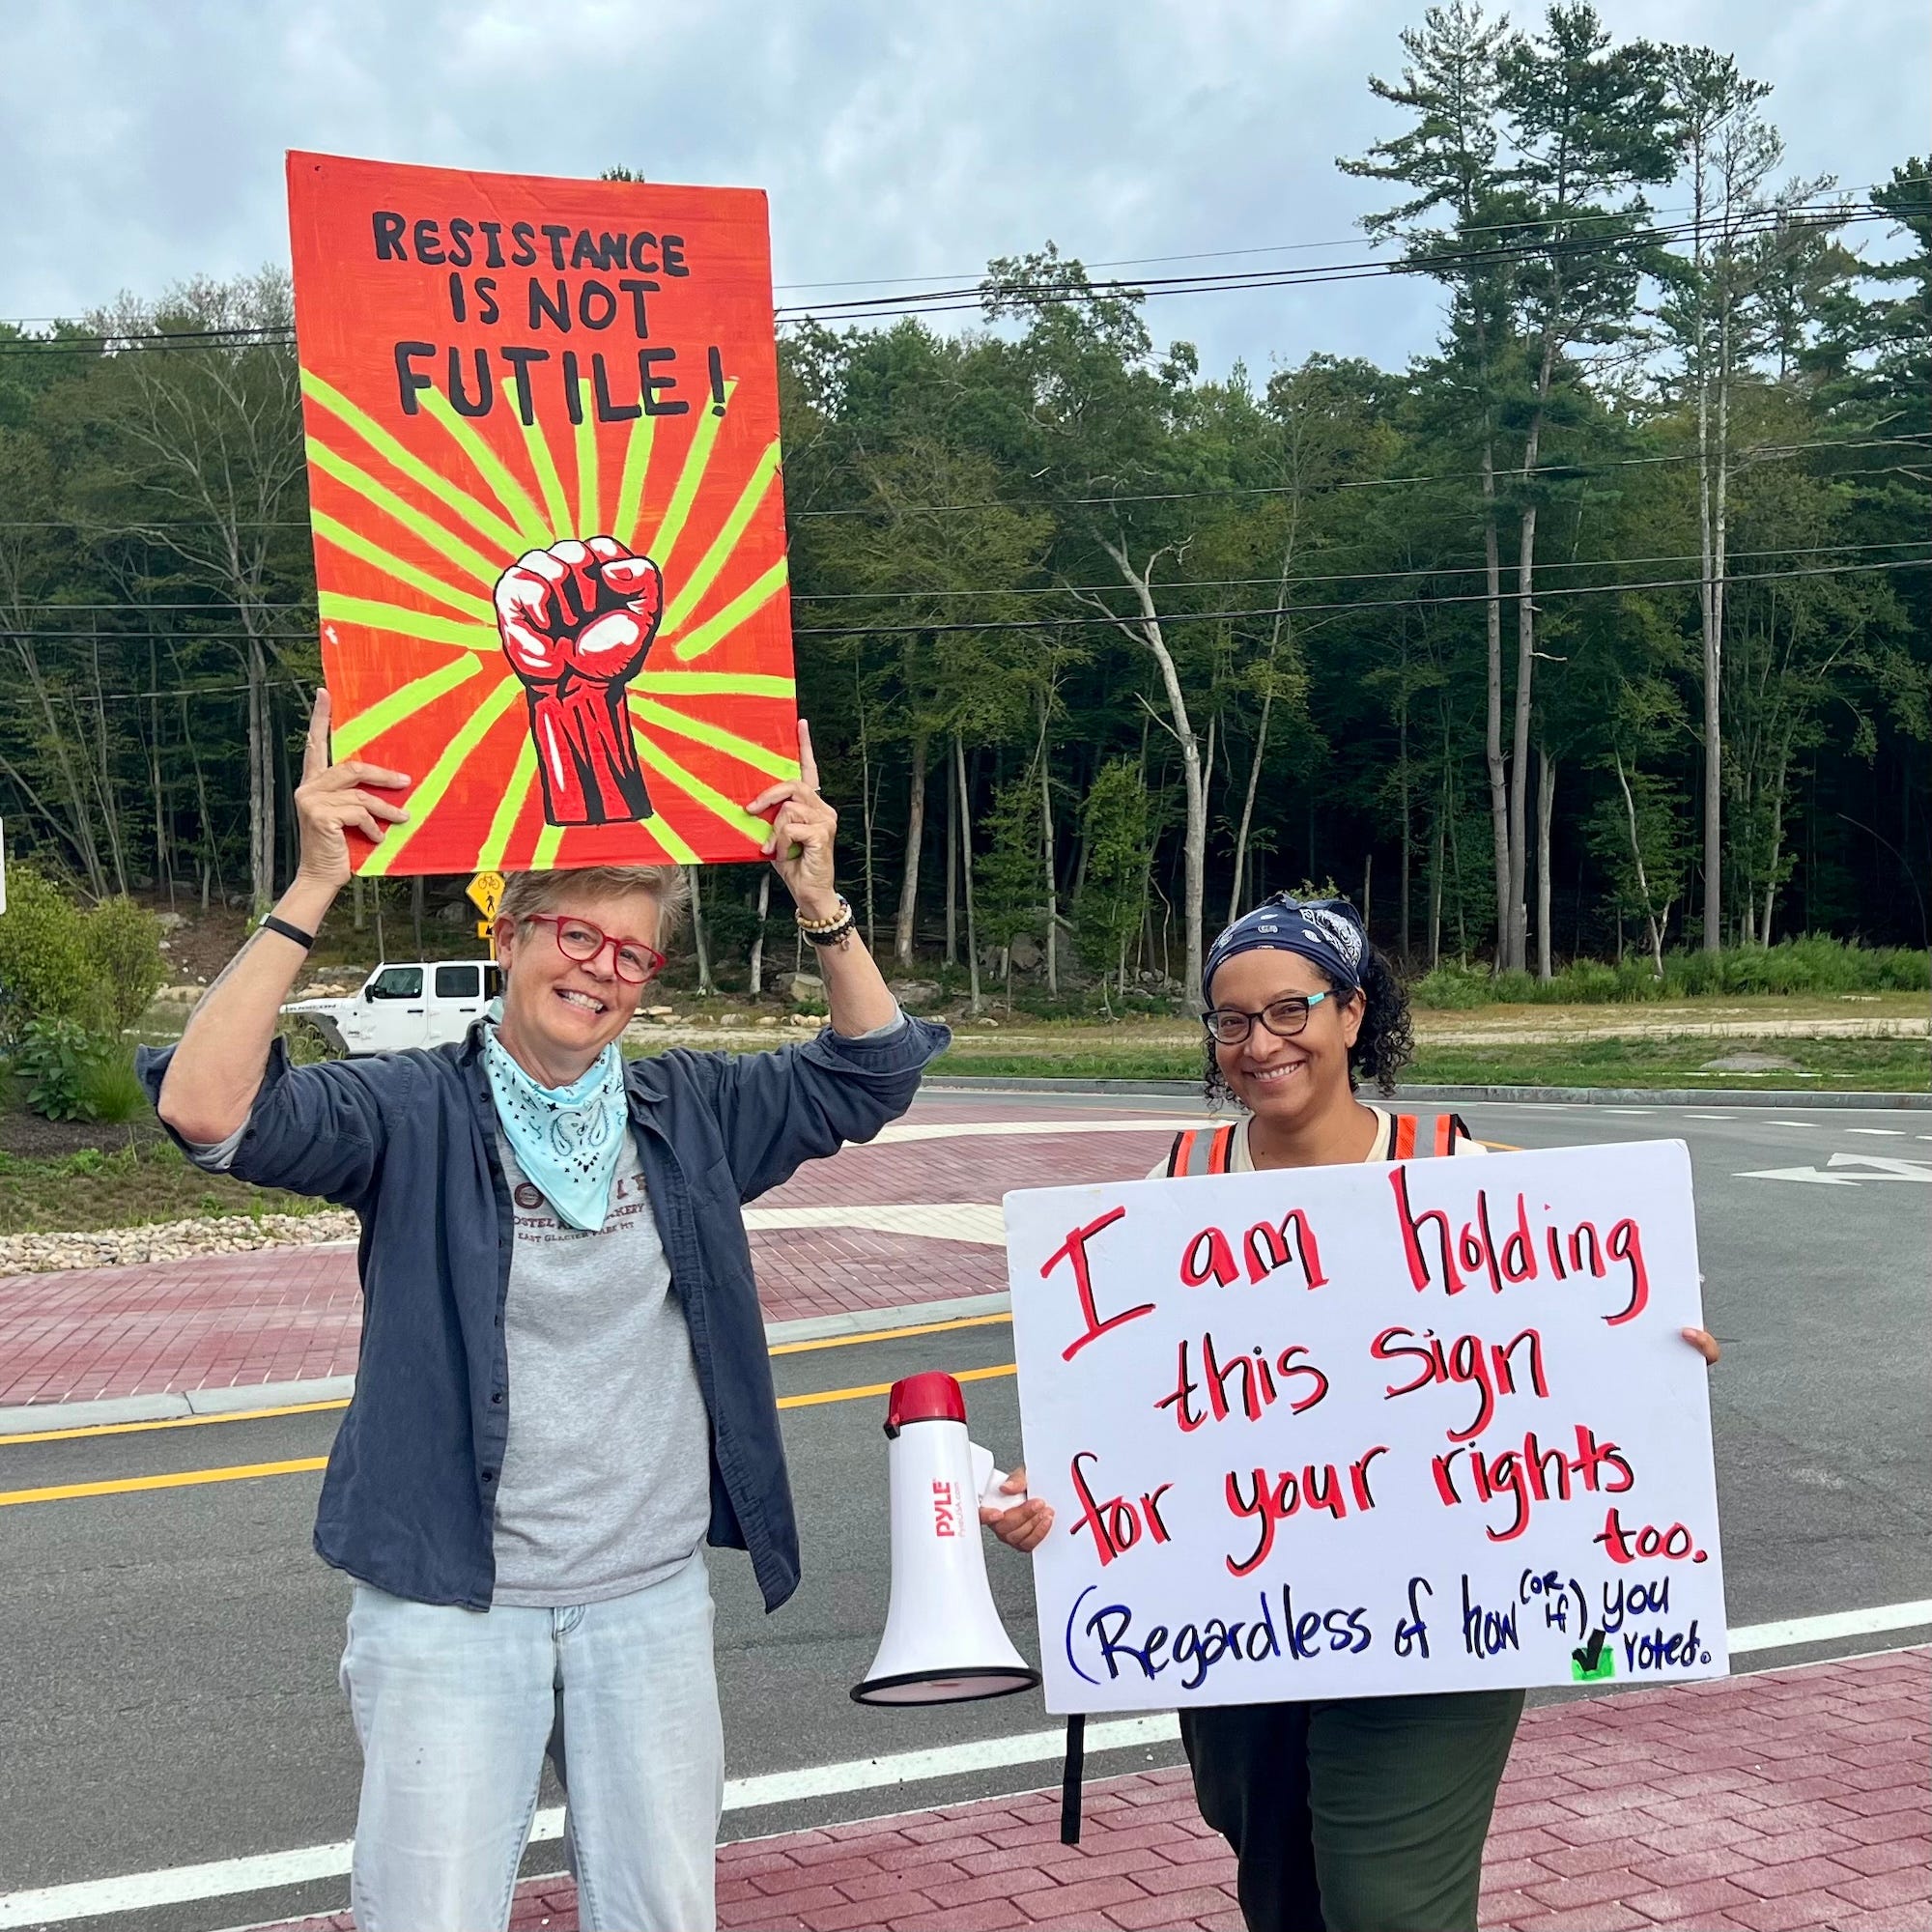 RESISTANCE
IS NOT
FUTILE!
EAST GLACIER PARK MT
PYLE
I am holding
this sign
for your rights
too.
(Regardless of how (OR IF) you
voted.